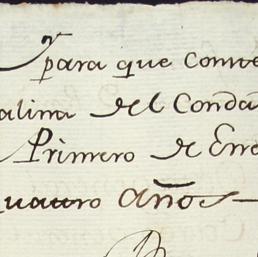 y para que conve
alina del Conda
Primero de Ene
quatro años